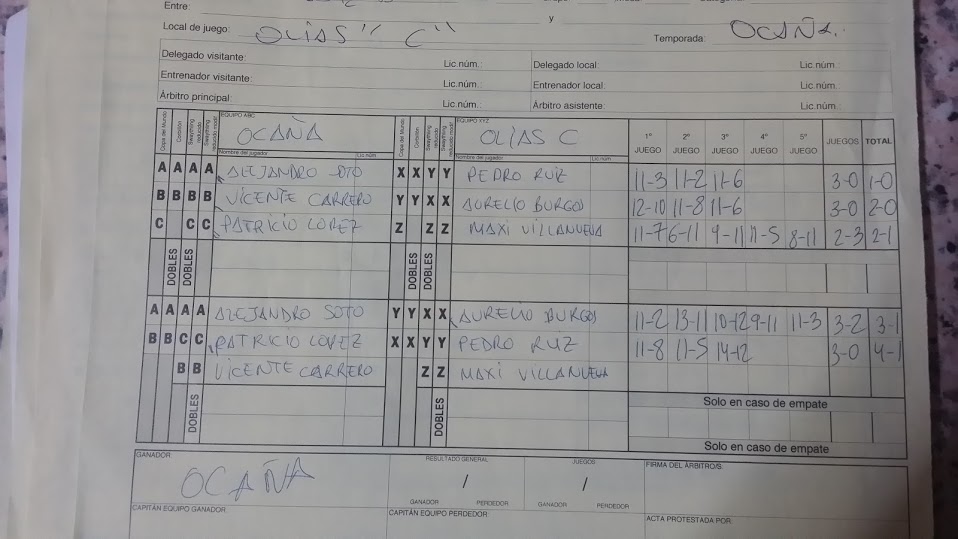 Entre: y
Local de juego: OLIAS "C" Temporada: OCAÑA.
Delegado visitante: Lic.núm.: Delegado local: Lic.núm.:
Entrenador visitante: Lic.núm.: Entrenador local: Lic.núm.:
Árbitro principal: Lic.núm.: Árbitro asistente: Lic.núm.:
Copa del Mundo Corbillón Swaythling reducido Swaythling reducido modif. EQUIPO ABC OCAÑA Copa del Mundo Corbillón Swaythling reducido Swaythling reducido modif. EQUIPO XYZ OLIAS C 1º JUEGO 2º JUEGO 3º JUEGO 4º JUEGO 5º JUEGO JUEGOS TOTAL
Nombre del jugador Lic núm. Nombre del jugador Lic núm.
A A A A ALEJANDRO SOTO X X Y Y PEDRO RUIZ 11-3 11-2 11-6 3-0 1-0
B B B B VICENTE CARRERO Y Y X X AURELIO BURGOS 12-10 11-8 11-6 3-0 2-0
C C C PATRICIO LOPEZ Z Z Z MAXI VILLANUEVA 11-7 6-11 9-11 11-5 8-11 2-3 2-1
DOBLES DOBLES DOBLES DOBLES
A A A A ALEJANDRO SOTO Y Y X X AURELIO BURGOS 11-2 13-11 10-12 9-11 11-3 3-2 3-1
B B C C PATRICIO LOPEZ X X Y Y PEDRO RUIZ 11-8 11-5 14-12 3-0 4-1
B B VICENTE CARRERO Z Z MAXI VILLANUEVA
Solo en caso de empate
DOBLES DOBLES
Solo en caso de empate
GANADOR OCAÑA RESULTADO GENERAL / JUEGOS / FIRMA DEL ÁRBITRO/S:
GANADOR PERDEDOR GANADOR PERDEDOR
CAPITÁN EQUIPO GANADOR CAPITÁN EQUIPO PERDEDOR ACTA PROTESTADA POR: